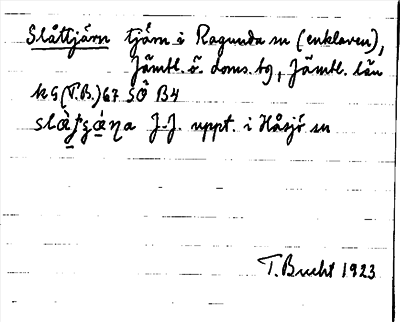 Slåttjärn tjärn i Ragunda sn (enklaven),
Jämtl. ö. doms. tg, Jämtl. län
k G (T.B.) 67 SÖ B4
J.J. uppt. i Håsjö sn
T. Bucht 1923